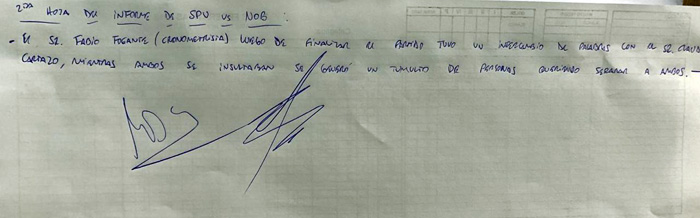 2DA HOJA DEL INFORME DE SPU VS NOB:
- EL SR. FABIO FOGANTE (CRONOMETRISTA) LUEGO DE FINALIZAR EL PARTIDO TUVO UN INTERCAMBIO DE PALABRAS CON EL SR. CLAUD
CARTAZO, MIENTRAS AMBOS SE INSULTABAN SE GENERÓ UN TUMULTO DE PERSONAS QUERIENDO SEPARAR A AMBOS.-